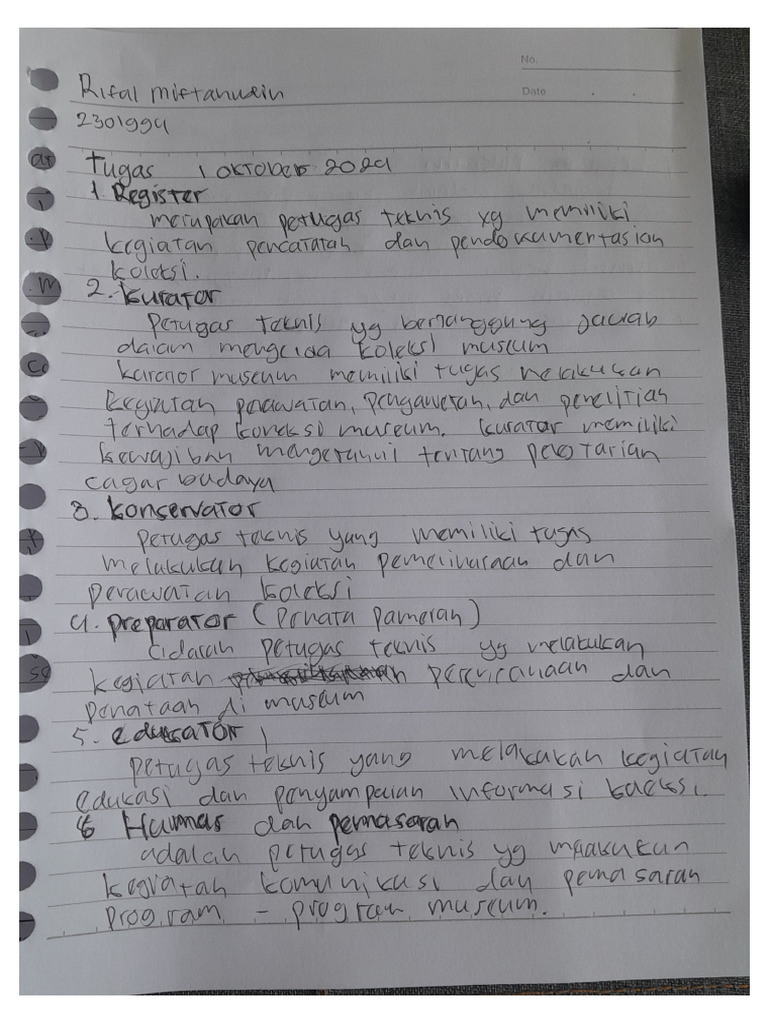 No.
Date . .
Rifal Miftahusein
2301994
Tugas 1 Oktober 2024
1. Register
merupakan petugas teknis yg memiliki
kegiatan pencatatan dan pendokumentasian
koleksi.
2. Kurator
Petugas teknis yg bertanggung jawab
dalam mengelola koleksi museum
kurator museum memiliki tugas melakukan
kegiatan perawatan, pengawetan, dan penelitian
terhadap koleksi museum. kurator memiliki
kewajiban mengetahui tentang pelestarian
cagar budaya
3. Konservator
Petugas teknis yang memiliki tugas
melakukan kegiatan pemeliharaan dan
perawatan koleksi
4. Preparator (Penata Pameran)
adalah petugas teknis yg melakukan
kegiatan perencanaan dan
penataan di museum
5. edukator
petugas teknis yang melakukan kegiatan
edukasi dan penyampaian informasi koleksi.
6 Humas dan pemasaran
adalah petugas teknis yg melakukan
kegiatan komunikasi dan pemasaran
program - program museum.